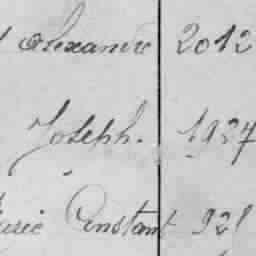 Alexandre 2012
Joseph. 1927
Constant 921